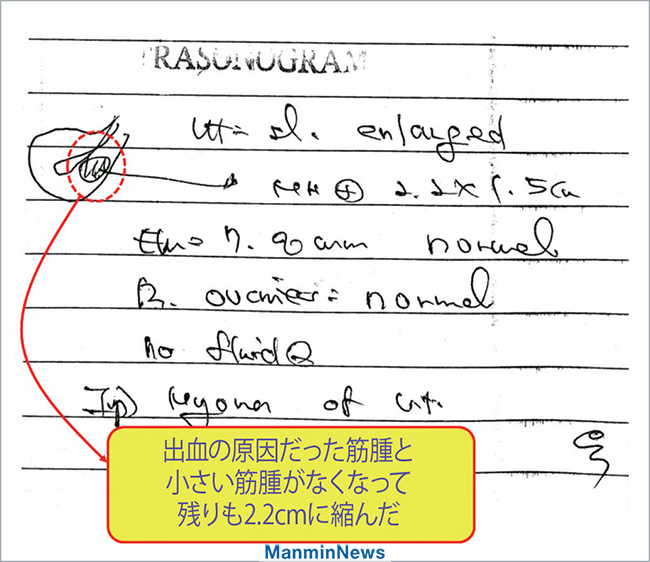 TRASONOGRAM
ut = sl. enlarged
⊕ 2.2 x 1.5cm
normal
ovaries = normal
no fluid
Imp) myoma of ut.
出血の原因だった筋腫と
小さい筋腫がなくなって
残りも2.2cmに縮んだ
ManminNews